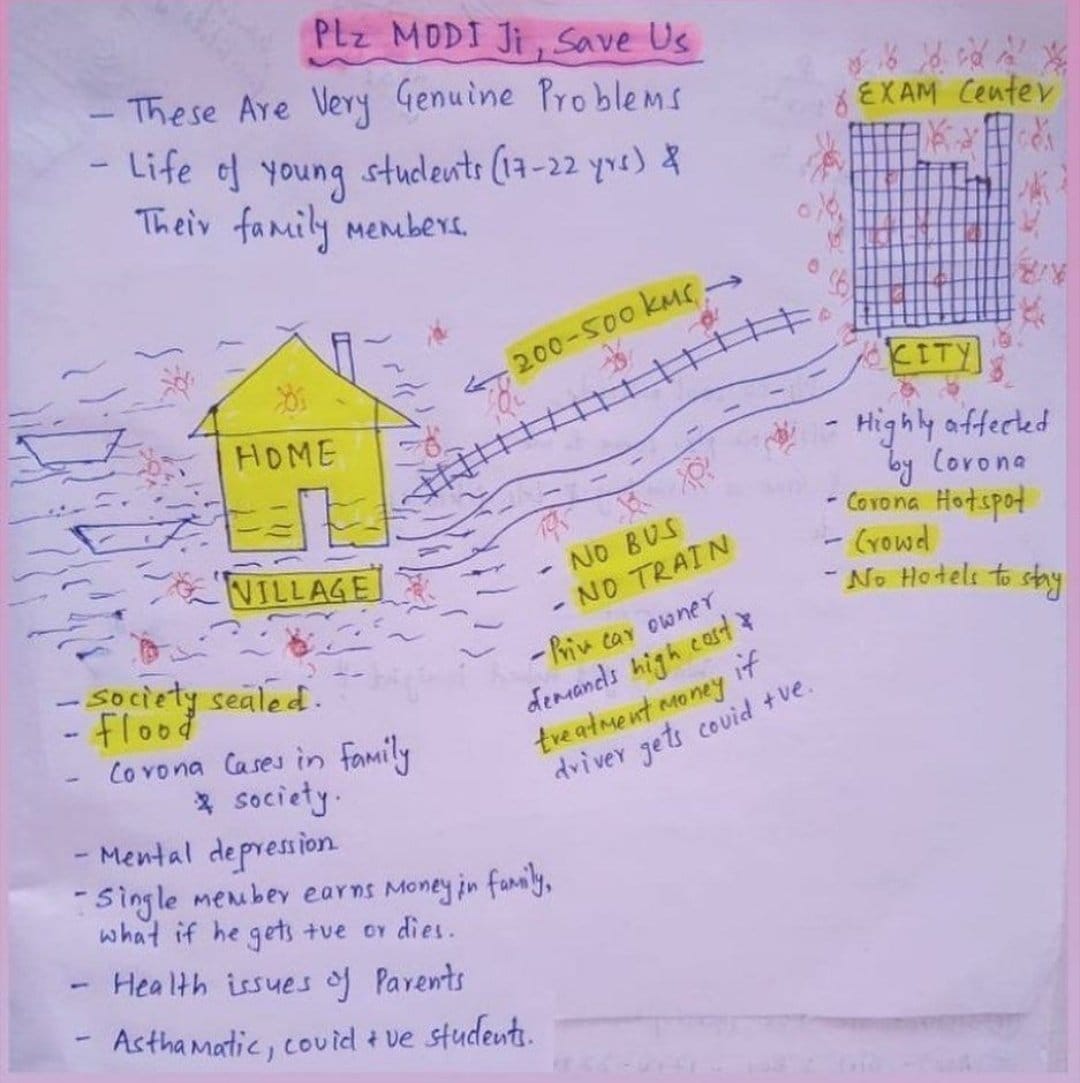 PLz MODI Ji, Save Us
- These Are Very Genuine Problems
- Life of young students (17-22 yrs) &
Their family Members.
EXAM Center
200-500 kms
CITY
- Highly affected
by Corona
- Corona Hotspot
- Crowd
- No Hotels to stay
HOME
"VILLAGE"
- NO BUS
- NO TRAIN
- Priv car owner
demands high cost &
treatment money if
driver gets covid +ve.
- Society sealed.
- flood
- Corona Cases in Family
& society.
- Mental depression
- Single member earns Money in family,
what if he gets +ve or dies.
- Health issues of Parents
- Asthamatic, covid +ve students.